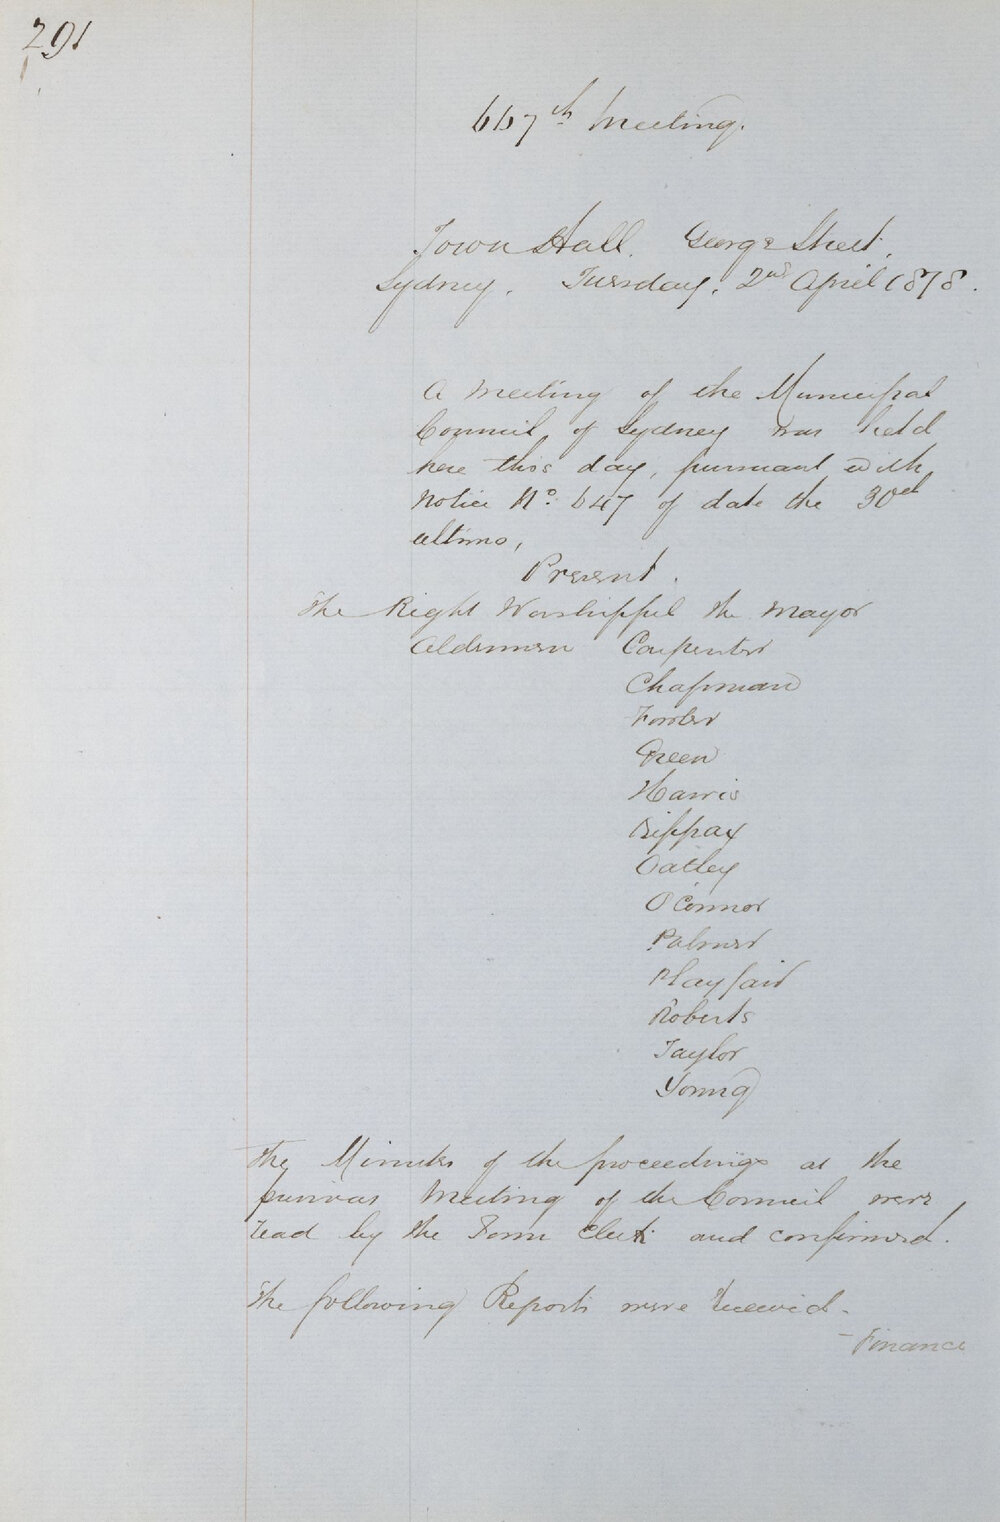 291
667th Meeting.
Town Hall. George Street,
Sydney. Tuesday, 2nd April 1878.
A Meeting of the Municipal
Council of Sydney was held
here this day, pursuant with
Notice No. 647 of date the 30th
ultimo,
Present.
The Right Worshipful the Mayor
Aldermen Carpenter
Chapman
Fowler
Green
Harris
Hippax
Oatley
O'Connor
Palmer
Playfair
Roberts
Taylor
Young
The Minutes of the proceedings at the
previous Meeting of the Council were
read by the Town Clerk and confirmed.
The following Reports were received -
- Finance